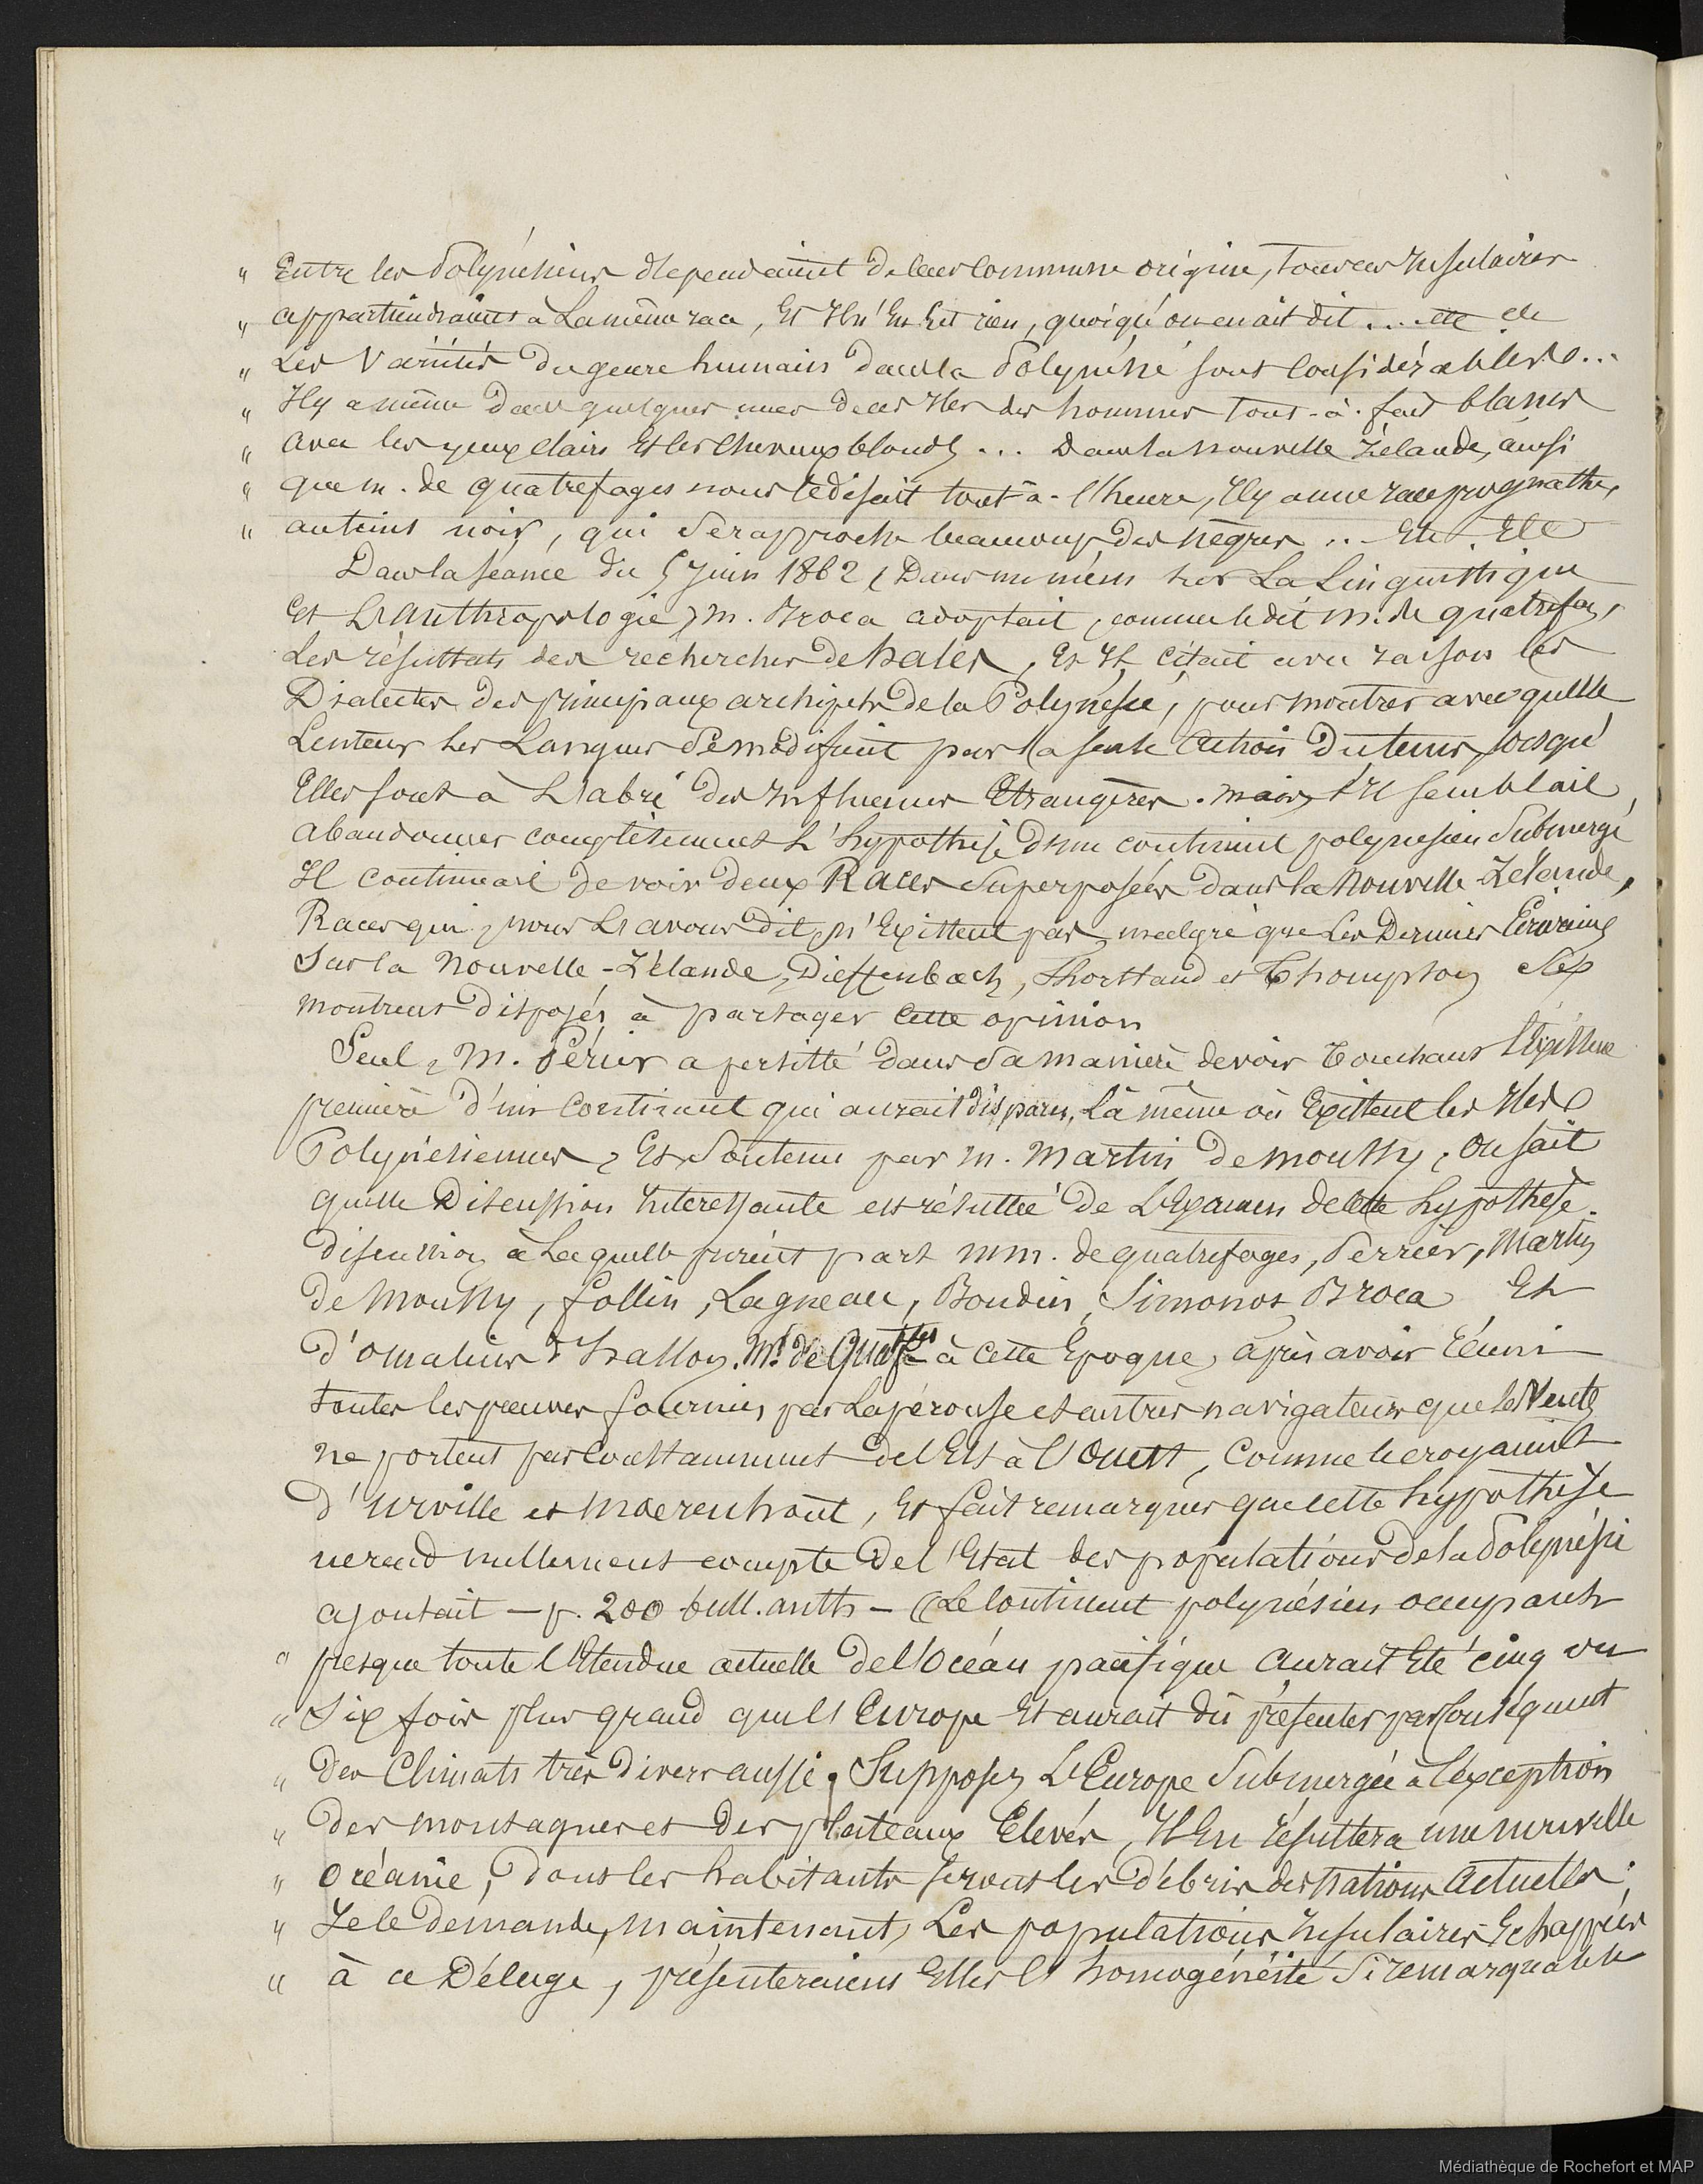 " Entre les Polynésiens dépendaient de leur commune origine, tous ces Insulaires
" appartiendraient à La même race, Et Il n'En Est rien, quoiqu'on en ait dit .... etc etc
" Les Variétés du genre humain dans la Polynésie sont Considérables ...
" Il y a même dans quelques unes de ces Iles des hommes tout-à-fait blancs
" avec les yeux clairs Et les Cheveux blonds ... Dans la nouvelle Zélande, ainsi
" que m. de quatrefages nous le disait tout-à-l'heure, Il y a une race prognathe,
" au teint noir, qui Se rapproche beaucoup des nègres .. Etc. Etc
Dans la séance du 5 Juin 1862 (Dans un mém. sur La Linguistique
Et L'anthropologie) m. Broca adoptait, comme le dit m. de quatrefag,
Les résultats des recherches de hales, Et Il citait avec raison les
Dialectes des principaux archipels de la Polynésie, pour montrer avec quelle
Lenteur les Langues Se modifient par la seule Action du tems, lorsqu'
Elles sont à L'abri des Influences Etrangères. mais, s'Il semblait
abandonner complètement L'hypothèse d'un continent polynésien Submergé,
Il continuait de voir deux Races Superposées dans la Nouvelle-Zélande,
Races qui, nous L'avons dit, n'Existent pas, malgré que Les Derniers Ecrivains
Sur la Nouvelle-Zélande, Dieffenbach, Shortland et Thompson Se
montrent disposés à partager Cette opinion
Seul, M. Périer a persisté dans Sa manière de voir touchant l'Existence
première d'un Continent qui aurait disparu, Là même où Existent les Iles
Polynésiennes, Et Soutenu par m. Martin de moussy, On sait
quelle Discussion Intéressante est résultée de L'Examen de cette hypothèse.
discussion à Laquelle prirent part mm. de quatrefages, Perrier, Martin
de Moussy, follin, Lagneau, Boudin, Simonot Broca Et
d'omalius d'halloy. Mr. de Quatfges à Cette Epoque, après avoir réuni
toutes les preuves fournies par Lapérouse et autres navigateurs que les Vents
ne portent pas Constamment de l'Est à l'Ouest, Comme le croyaient
d'Urville et Moerenhout, Et fait remarquer que cette hypothèse
ne rend nullement compte de l'Etat des populations de la Polynésie
ajoutait — p. 200 bull. anth — (Le Continent polynésien occupant
" presque toute l'Etendue actuelle de l'Océan pacifique Aurait Eté cinq ou
" Six fois plus grand que l'Europe Et aurait dû présenter par Conséquent
" Des Climats très divers aussi. Supposez L'Europe Submergée à l'exception
" des montagnes et des plateaux Elevés, Il En résultera une nouvelle
" Océanie, dont les habitants seront les débris des nations Actuelles;
" Je le demande, maintenant, Les populations Insulaires Echappées
" à ce Déluge, présenteraient Elles l'homogénéité Si remarquable